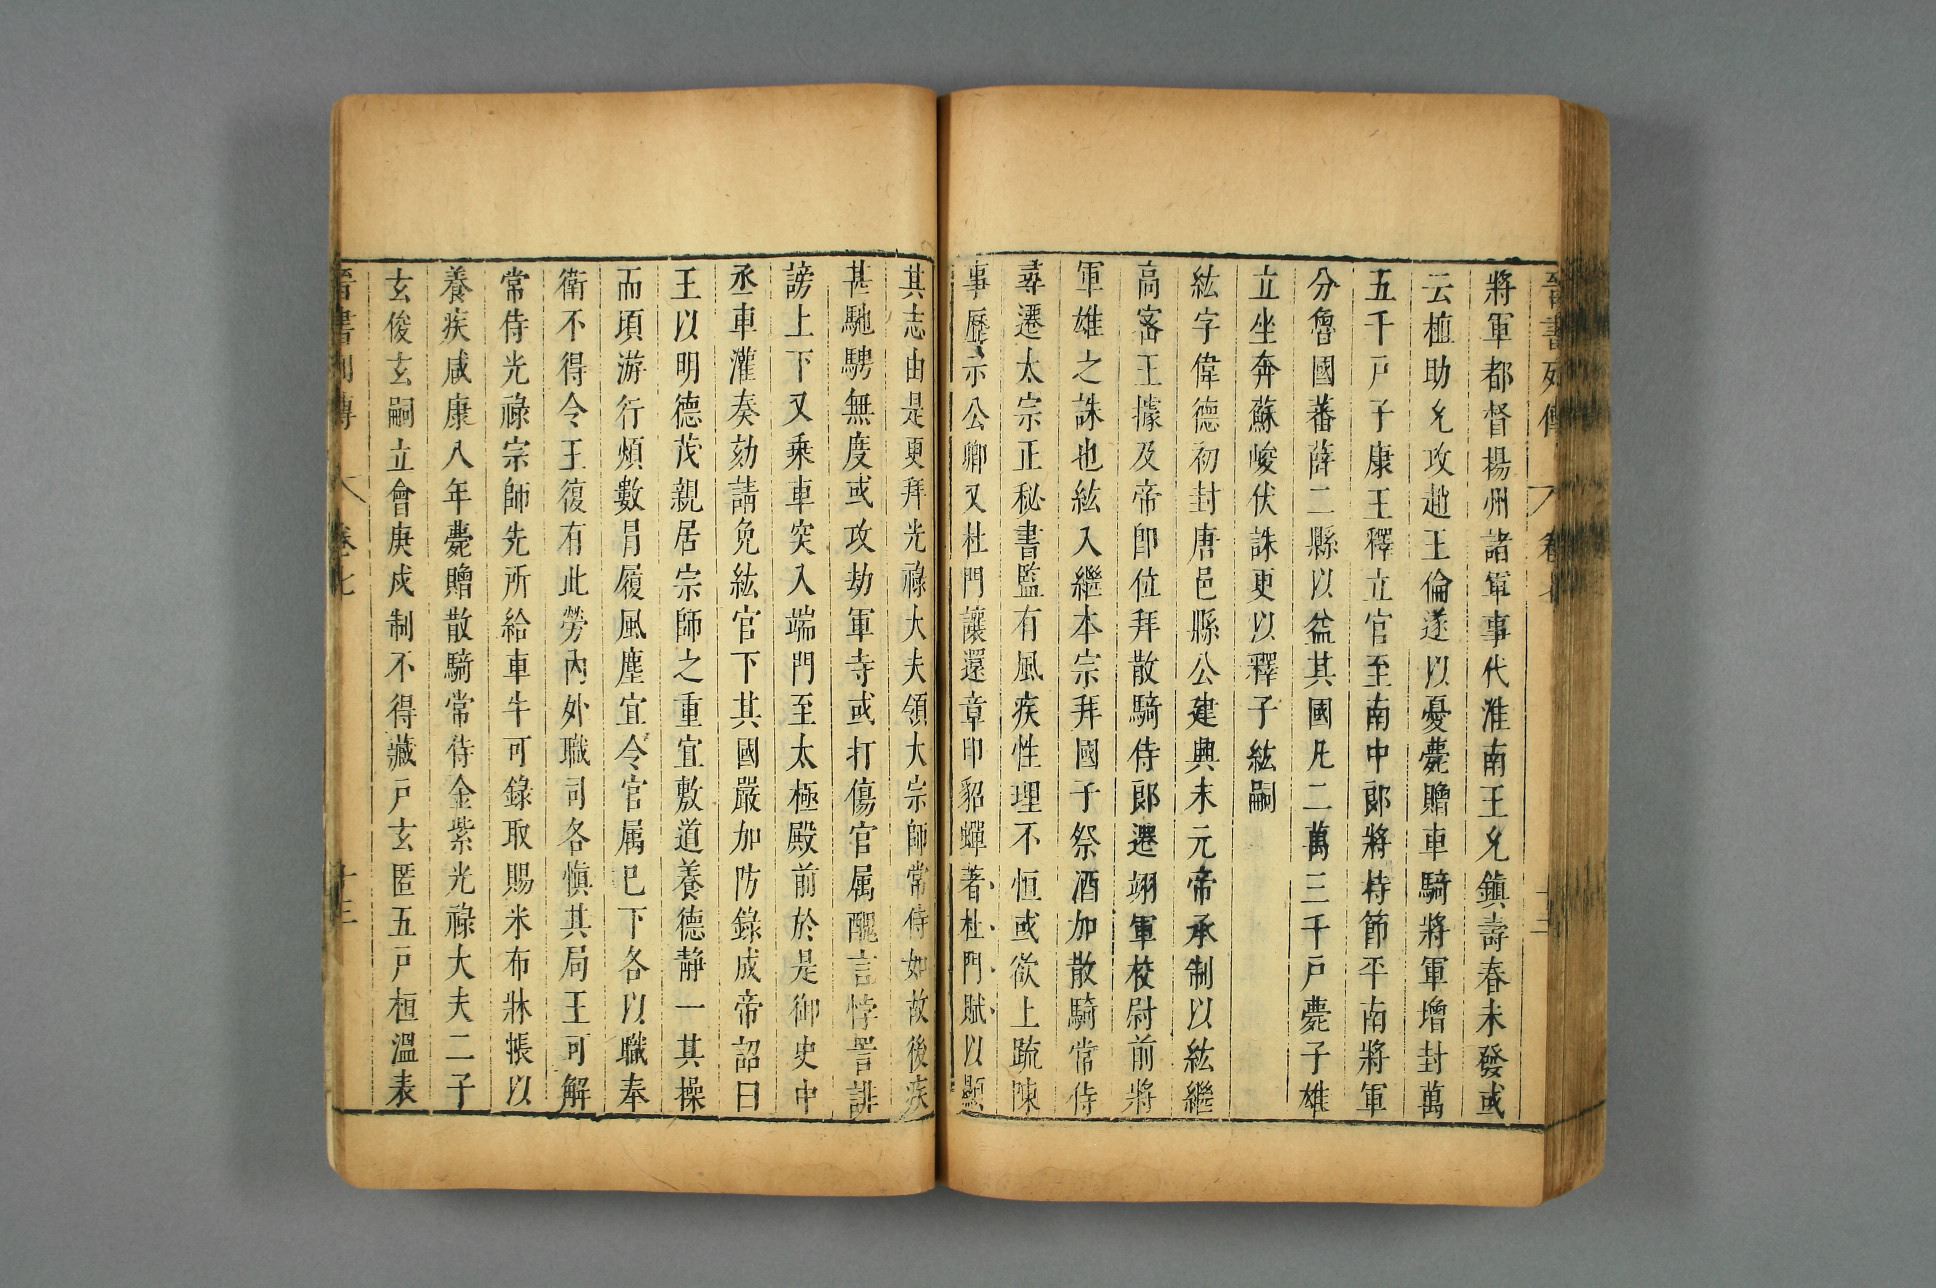 晉書列傳 卷七 十二
將軍都督揚州諸軍事代淮南王允鎮壽春未發或
云植助允攻趙王倫遂以憂薨贈車騎將軍增封萬
五千戶子康王釋立官至南中郎將持節平南將軍
分魯國蕃薛二縣以益其國凡二萬三千戶薨子雄
立坐奔蘇峻伏誅更以釋子紘嗣
紘字偉德初封唐邑縣公建興末元帝承制以紘繼
高密王據及帝即位拜散騎侍郎遷翊軍校尉前將
軍雄之誅也紘入繼本宗拜國子祭酒加散騎常侍
尋遷太宗正秘書監有風疾性理不恒或欲上疏陳
事歷示公卿又杜門讓還章印貂蟬著杜門賦以顯
其志由是更拜光祿大夫領大宗師常侍如故後疾
甚馳騁無度或攻劫軍寺或打傷官属醜言悖詈誹
謗上下又乘車突入端門至太極殿前於是御史中
丞車灌奏劾請免紘官下其國嚴加防錄成帝詔曰
王以明德茂親居宗師之重宜敷道養德靜一其操
而頃游行煩數冐履風塵宜令官属已下各以職奉
衛不得令王復有此勞內外職司各慎其局王可解
常侍光祿宗師先所給車牛可錄取賜米布牀帳以
養疾咸康八年薨贈散騎常侍金紫光祿大夫二子
玄俊玄嗣立會庚戍制不得藏戶玄匿五戶桓溫表
晉書列傳 卷七 十三